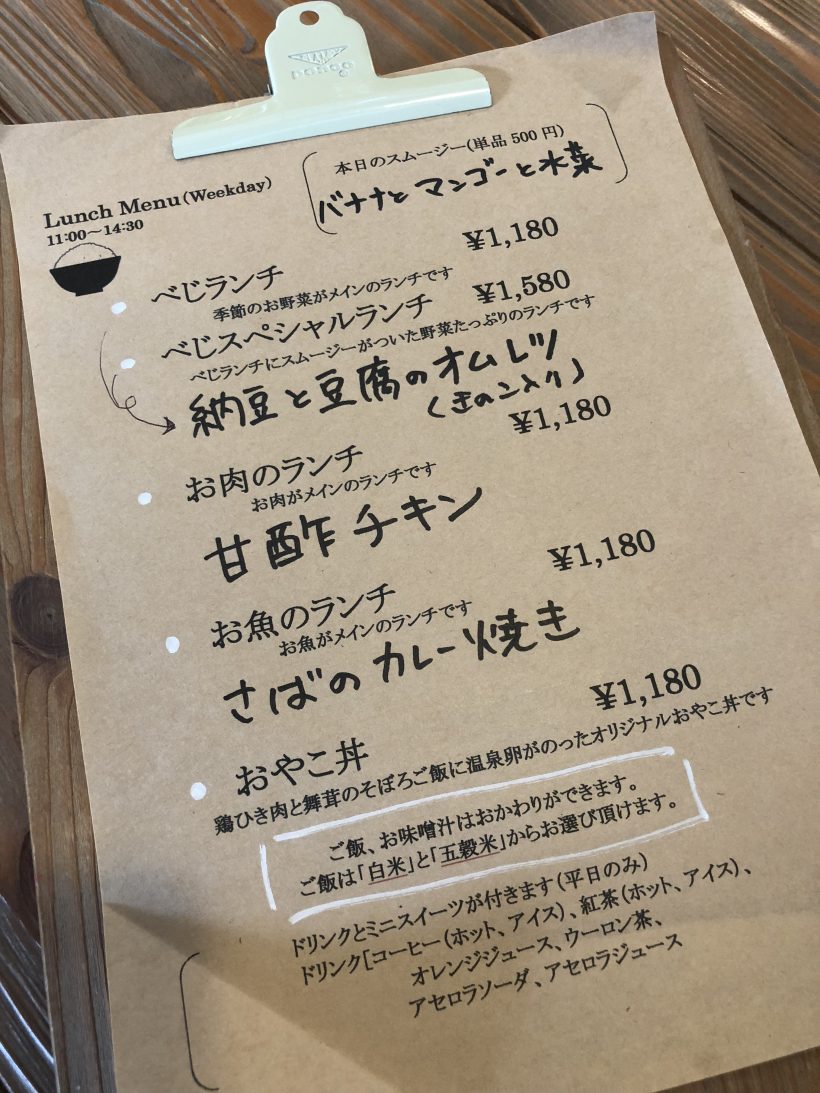 本日のスムージー(単品 500 円)
バナナと マンゴーと水菜
Lunch Menu(Weekday)
11:00～14:30
べじランチ ¥1,180
季節のお野菜がメインのランチです
べじスペシャルランチ ¥1,580
べじランチにスムージーがついた野菜たっぷりのランチです
納豆と豆腐のオムレツ
(きのこ入り)
お肉のランチ ¥1,180
お肉がメインのランチです
甘酢チキン
お魚のランチ ¥1,180
お魚がメインのランチです
さばのカレー焼き
おやこ丼 ¥1,180
鶏ひき肉と舞茸のそぼろご飯に温泉卵がのったオリジナルおやこ丼です
ご飯、お味噌汁はおかわりができます。
ご飯は「白米」と「五穀米」からお選び頂けます。
ドリンクとミニスイーツが付きます(平日のみ)
ドリンク[コーヒー(ホット、アイス)、紅茶(ホット、アイス)、
オレンジジュース、ウーロン茶、
アセロラソーダ、アセロラジュース